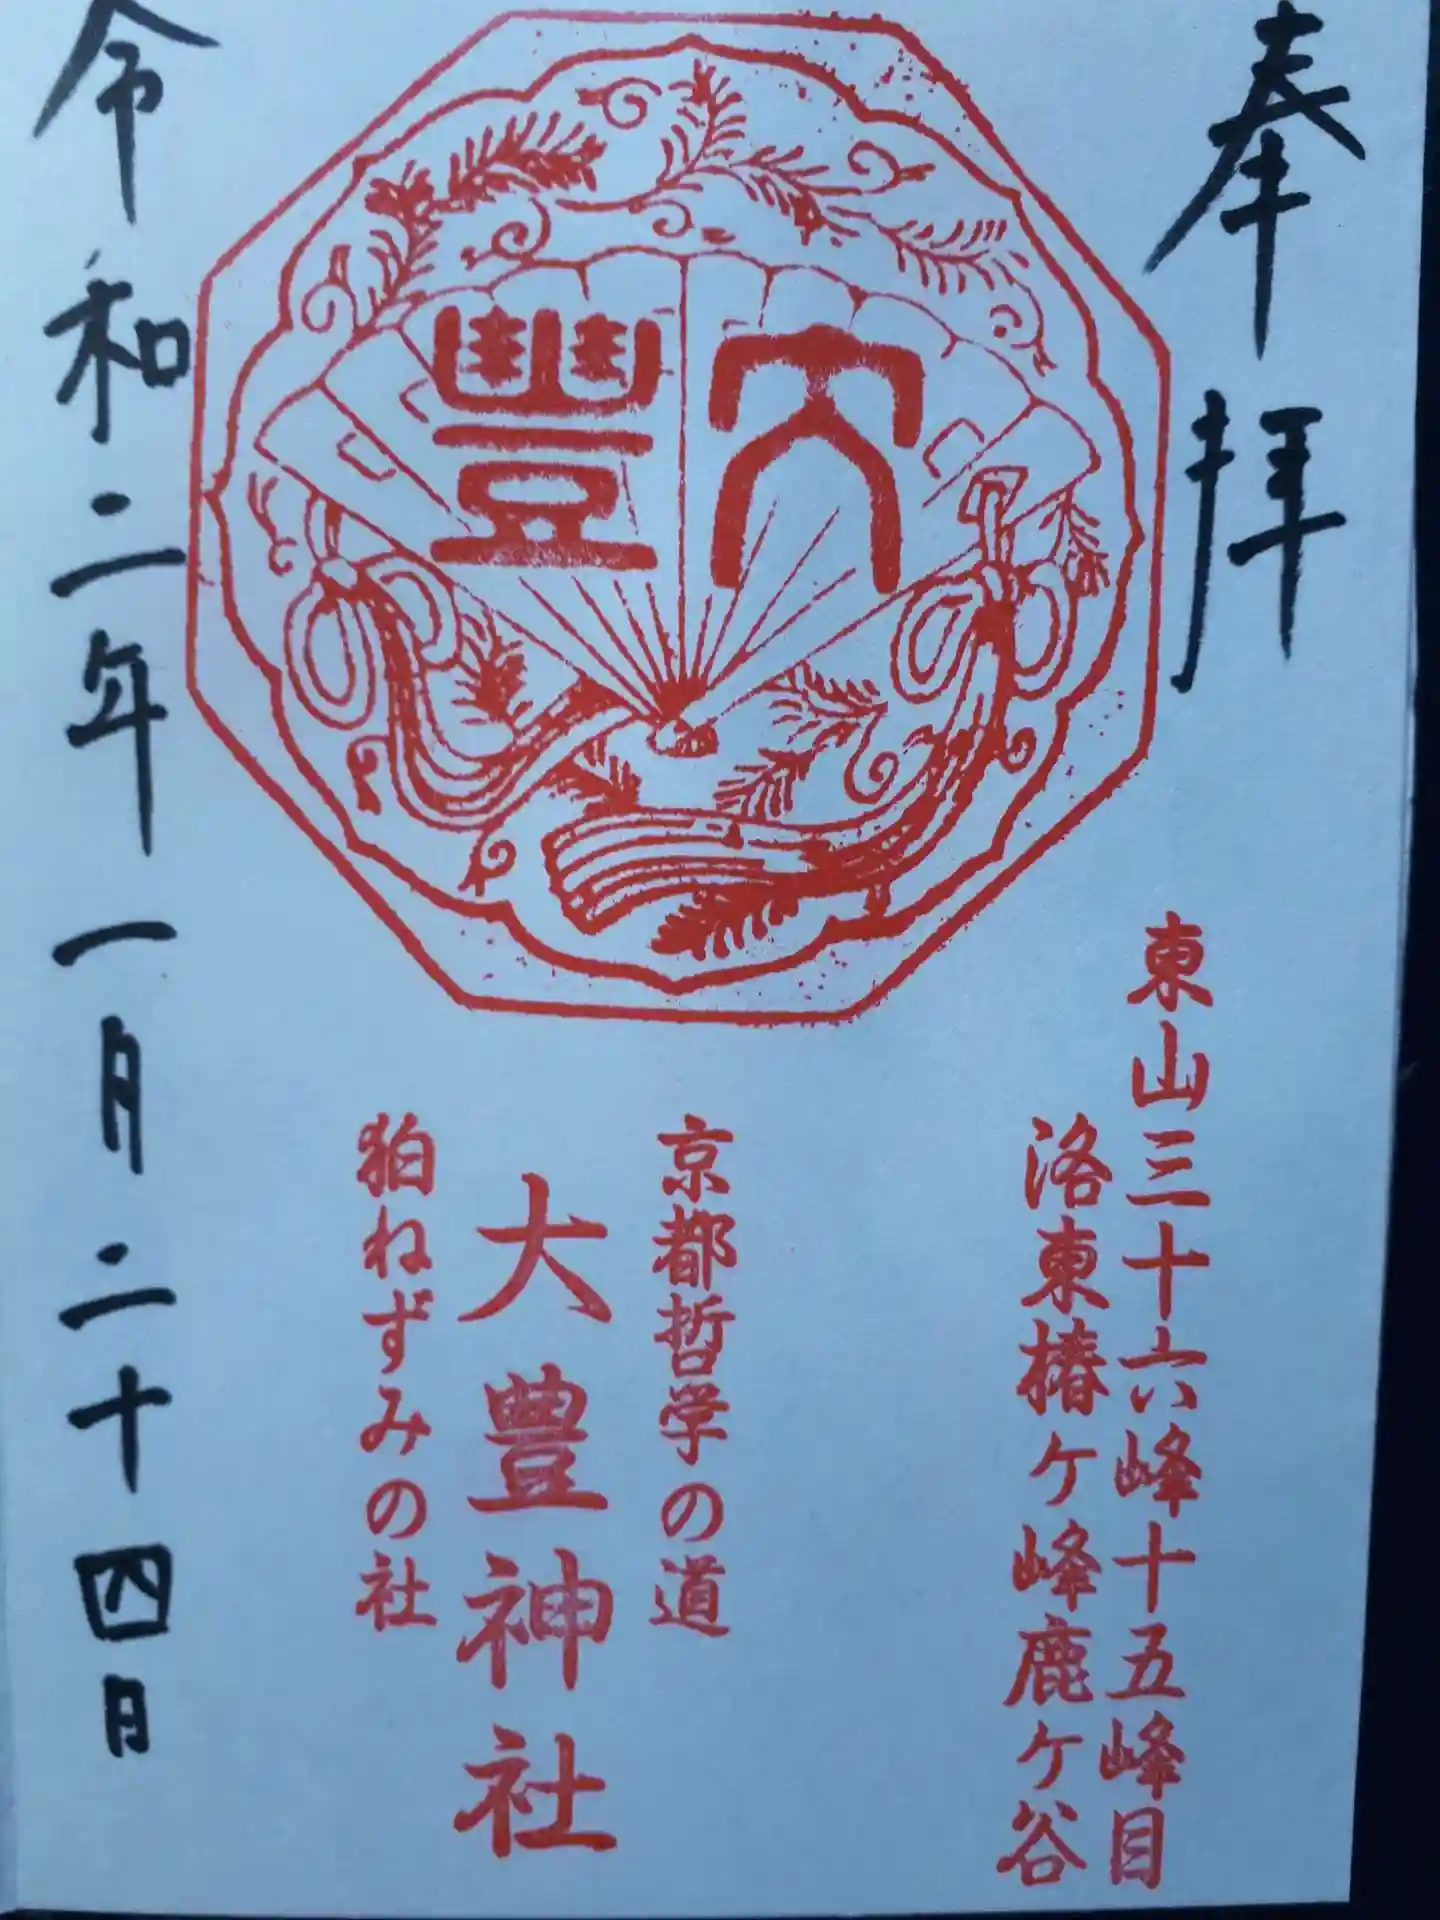 奉拝
東山三十六峰十五峰目
洛東椿ケ峰鹿ケ谷
大豊
京都哲学の道
大豊神社
狛ねずみの社
令和二年一月二十四日